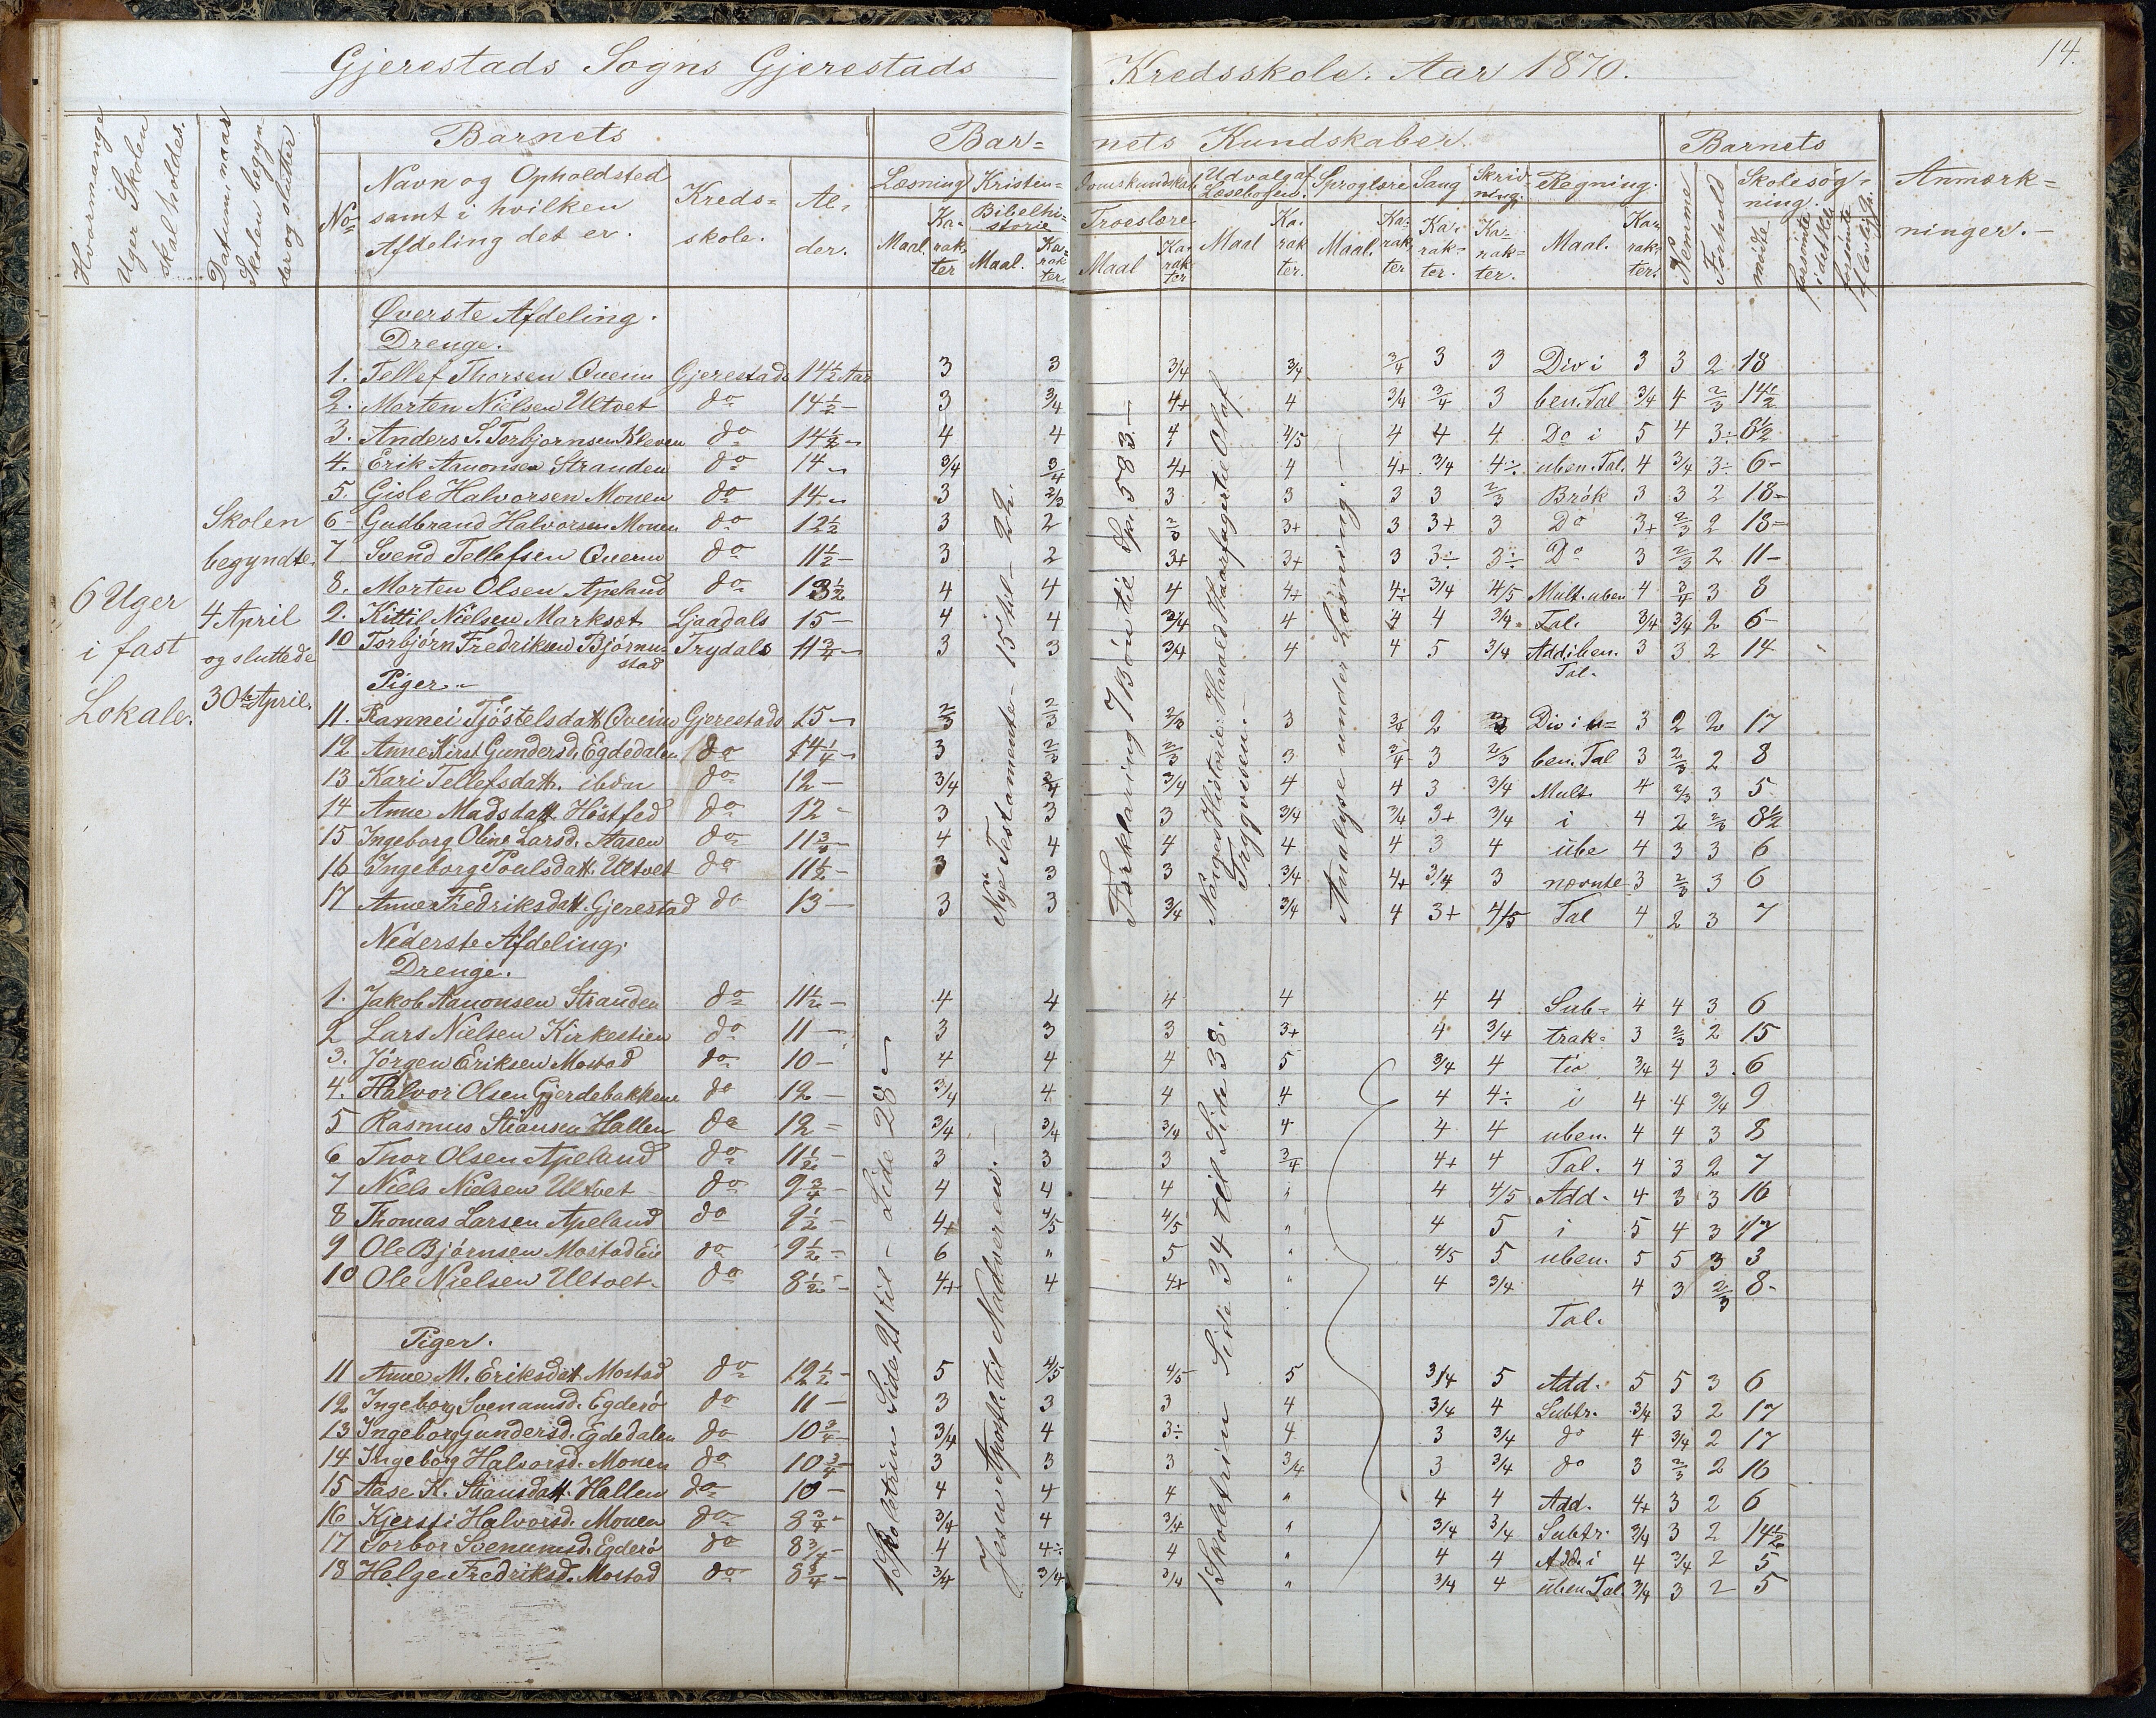 14.
Gjerestads Sogns Gjerestads Kredsskole. Aar 1870.
Hvormange Uger Skolen skal holdes.
Datum, naar Skolen begynder og slutter
Barnets
No
Navn og Opholdsted samt i hvilken Afdeling det er.
Kredsskole.
Alder.
Barnets Kundskaber.
Læsning
Maal. Karakter
Kristendomskundskab
Bibelhistorie
Maal. Karakter.
Troeslære
Maal Karakter
Udvalg af Læsebogen.
Maal Karakter.
Sproglære
Maal. Karakter
Sang
Karakter.
Skrivning.
Karakter.
Regning.
Maal. Karakter.
Barnets
Nemme
Forhold
Skolesøgning.
møde
forsømte i det Hele
forsømte af lovl. Gr.
Anmærkninger.
6 Uger i fast Lokale.
Skolen begyndte 4 April og sluttede 30te April.
Øverste Afdeling.
Drenge.
1. Tellef Thorsen Qvenn Gjerestads 14½ Aar 3 3 3/4 3/4 3/4 3 3 Div i 3 3 2 18
2. Morten Nielsen Ultvet do 14½ - 3 3/4 4+ 4 3/4 3/4 3 ben. Tal 3/4 4 2/3 14½
3. Anders S. Torbjornsen Kleven do 14½ - 4 4 4 4/5 4 4 4 Do i 5 4 3÷ 8½
4. Erik Aanonsen Stranden do 14 - 3/4 3/4 4+ 4 4+ 3/4 4÷ uben. Tal. 4 3/4 3÷ 6-
5. Gisle Halvorsen Monen do 14 - 3 2/3 3 3 3 3 2/3 Brök 3 3 2 18-
6- Gudbrand Halvorsen Monen do 12½ 3 2 2/3 3+ 3 3+ 3 Do 3+ 2/3 2 18-
7 Svend Tellefsen Qvenn do 11½- 3 2 3+ 3+ 3 3÷ 3÷ Do 3 2/3 2 11-
8. Morten Olsen Apeland do 13½ 4 4 4 4+ 4÷ 3/4 4/5 Mult. uben 4 3/4 3 8
9. Kittil Nielsen Marksæt Ljaadals 15- 4 4 3/4 4 4 4 3/4 Tal. 3/4 3/4 2 6-
10 Torbjörn Fredriksen Björnustad Trydals 11¾- 3 3 3/4 4 4 5 3/4 Add i ben. Tal. 3 3 2 14
Piger.-
11. Rannei Tjöstelsdatt. Qvenn Gjerestads 15- 2/3 2/3 2/3 3 3/4 2 Div i u= 3 2 2 17
12 Anne Kirst. Gundersd. Egdedalen do 14¼- 3 2/3 2/3 3 3/4 3 2/3 ben. Tal 3 2/3 2 8
13 Kari Tellefsdatt. ibdm do 12- 3/4 3/4 3/4 4 4 3 3/4 Mult. 4 2/3 3 5
14 Anne Madsdatt. Höstfod do 12- 3 3 3 3/4 3/4 3+ 3/4 i 4 2 2/3 8½
15 Ingeborg Oline Larsd. Aasen do 11¾- 4 4 4 4 4 3 4 übe 4 3 3 6
16 Ingeborg Poulsdatt. Ultvet do 11½- 3 3 3 3/4 4+ 3/4 3 nævnte 3 2/3 3 6
17 Anne Fredriksdatt. Gjerestad do 13- 3 3 3/4 3/4 4 3+ 4/5 Tal 4 2 3 7
Nye Testamente - 15 til - 22.
Forklaring 7 Bön til Spr. 583.-
Norges Historie: Harald Haarfager til Olaf Trygvesen.-
Analyse under Læsning.-
Nederste Afdeling.
Drenge.
1. Jakob Aanonsen Stranden do 11½- 4 4 4 4 4 4 Sub- 4 4 3 6
2 Lars Nielsen Kirkestien do 11- 3 3 3 3+ 4 3/4 trak- 3 2/3 2 15
3. Jörgen Eriksen Mostad do 10- 4 4 4 5 3/4 4 tio 3/4 4 3 6
4. Halvor Olsen Gjerdebakken do 12- 3/4 4 4 4 4 4÷ i 4 4 3/4 9
5 Rasmus Stiansen Hallen do 12- 3/4 3/4 3/4 4 4 4 uben. 4 4 3 8
6 Thor Olsen Apeland do 11½- 3 3 3 3/4 4+ 4 Tal. 4 3 2 7
7 Niels Nielsen Ultvet do 9¾- 4 4 4 " 4 4/5 Add. 4 3 3 16
8 Thomas Larsen Apeland do 9½- 4+ 4/5 4/5 " 4 5 i 5 4 3 17
9 Ole Björnsen Mostad Eie do 9½- 6 " 5 " 4/5 5 uben. 5 5 3 3
10 Ole Nielsen Ultvet. do 8½- 4+ 4 4+ " 4 3/4 4 3 2/3 8-
Tal.
Piger.
11 Anne M. Eriksdatt. Mostad do 12½- 5 4/5 4/5 5 3/4 5 Add. 5 5 3 6
12 Ingeborg Svenamsd. Egderö do 11- 3 3 3 4 3/4 4 Subtr. 3/4 3 2 17
13 Ingeborg Gundersd. Egdedalen do 10¾- 3/4 4 3÷ 4 3 3/4 do 4 3/4 2 17
14 Ingeborg Halvorsd. Monen do 10¾- 3 3 3 3/4 3 3/4 do 3 2/3 2 16
15 Aase K. Stiansdatt. Hallen do 10- 4 4 4 " 4 4 Add. 4+ 3 2 6
16 Kjersti Halvorsd. Monen do 8¾- 3/4 4 3/4 " 3/4 3/4 Subtr. 3/4 3 2 14½
17 Torbor Svenumsd. Egderö do 8¾- 4 4÷ 4 " 4 4 Add. i 4 3/4 2 5
18 Helge Fredriksd. Mostad do 8¾- 3/4 3/4 3/4 " 3/4 4 uben Tal. 3/4 3 2 5
1 Skoletrin Side 21 til - Side 28-
Jesu Apostle til Nadveren.-
1 Skoletrin Side 34 til Side 38.